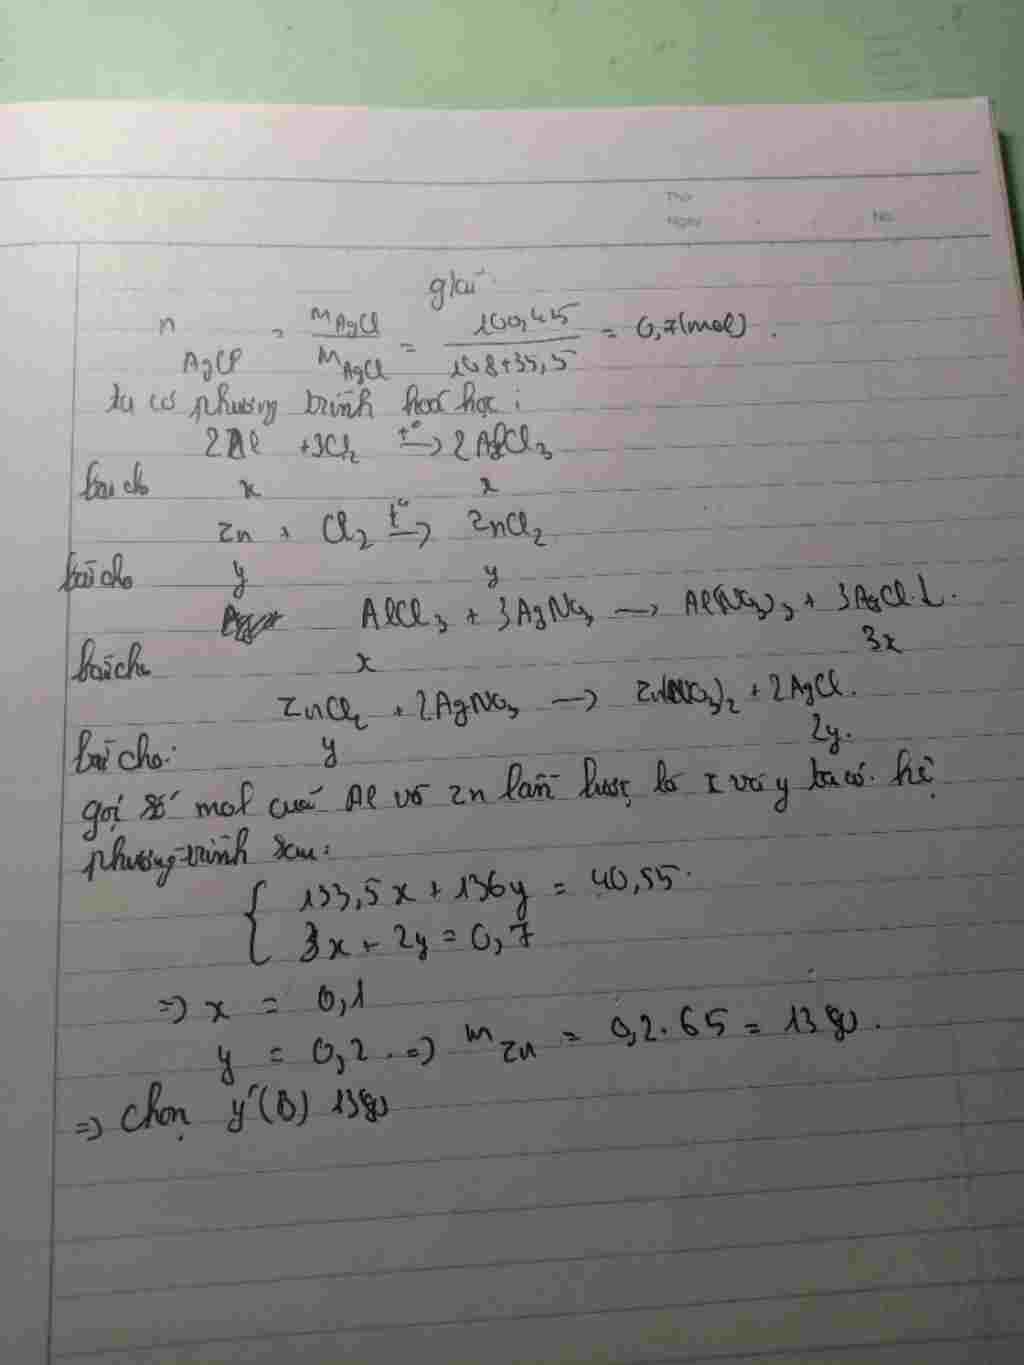 Thứ
Ngày No.
giải
n AgCl = m AgCl / M AgCl = 100,45 / 108+35,5 = 0,7(mol).
ta có phương trình hoá học:
2Al + 3Cl2 t° → 2AlCl3
bài cho x x
Zn + Cl2 t° → ZnCl2
bài cho y y
AlCl3 + 3AgNO3 → Al(NO3)3 + 3AgCl↓.
bài cho x 3x
ZnCl2 + 2AgNO3 → Zn(NO3)2 + 2AgCl.
bài cho: y 2y.
gọi số mol của Al và Zn lần lượt là x và y ta có hệ
phương trình sau:
{ 133,5x + 136y = 40,55.
3x + 2y = 0,7
=> x = 0,1
y = 0,2. => m Zn = 0,2.65 = 13g.
=> chọn ý (B) 13g